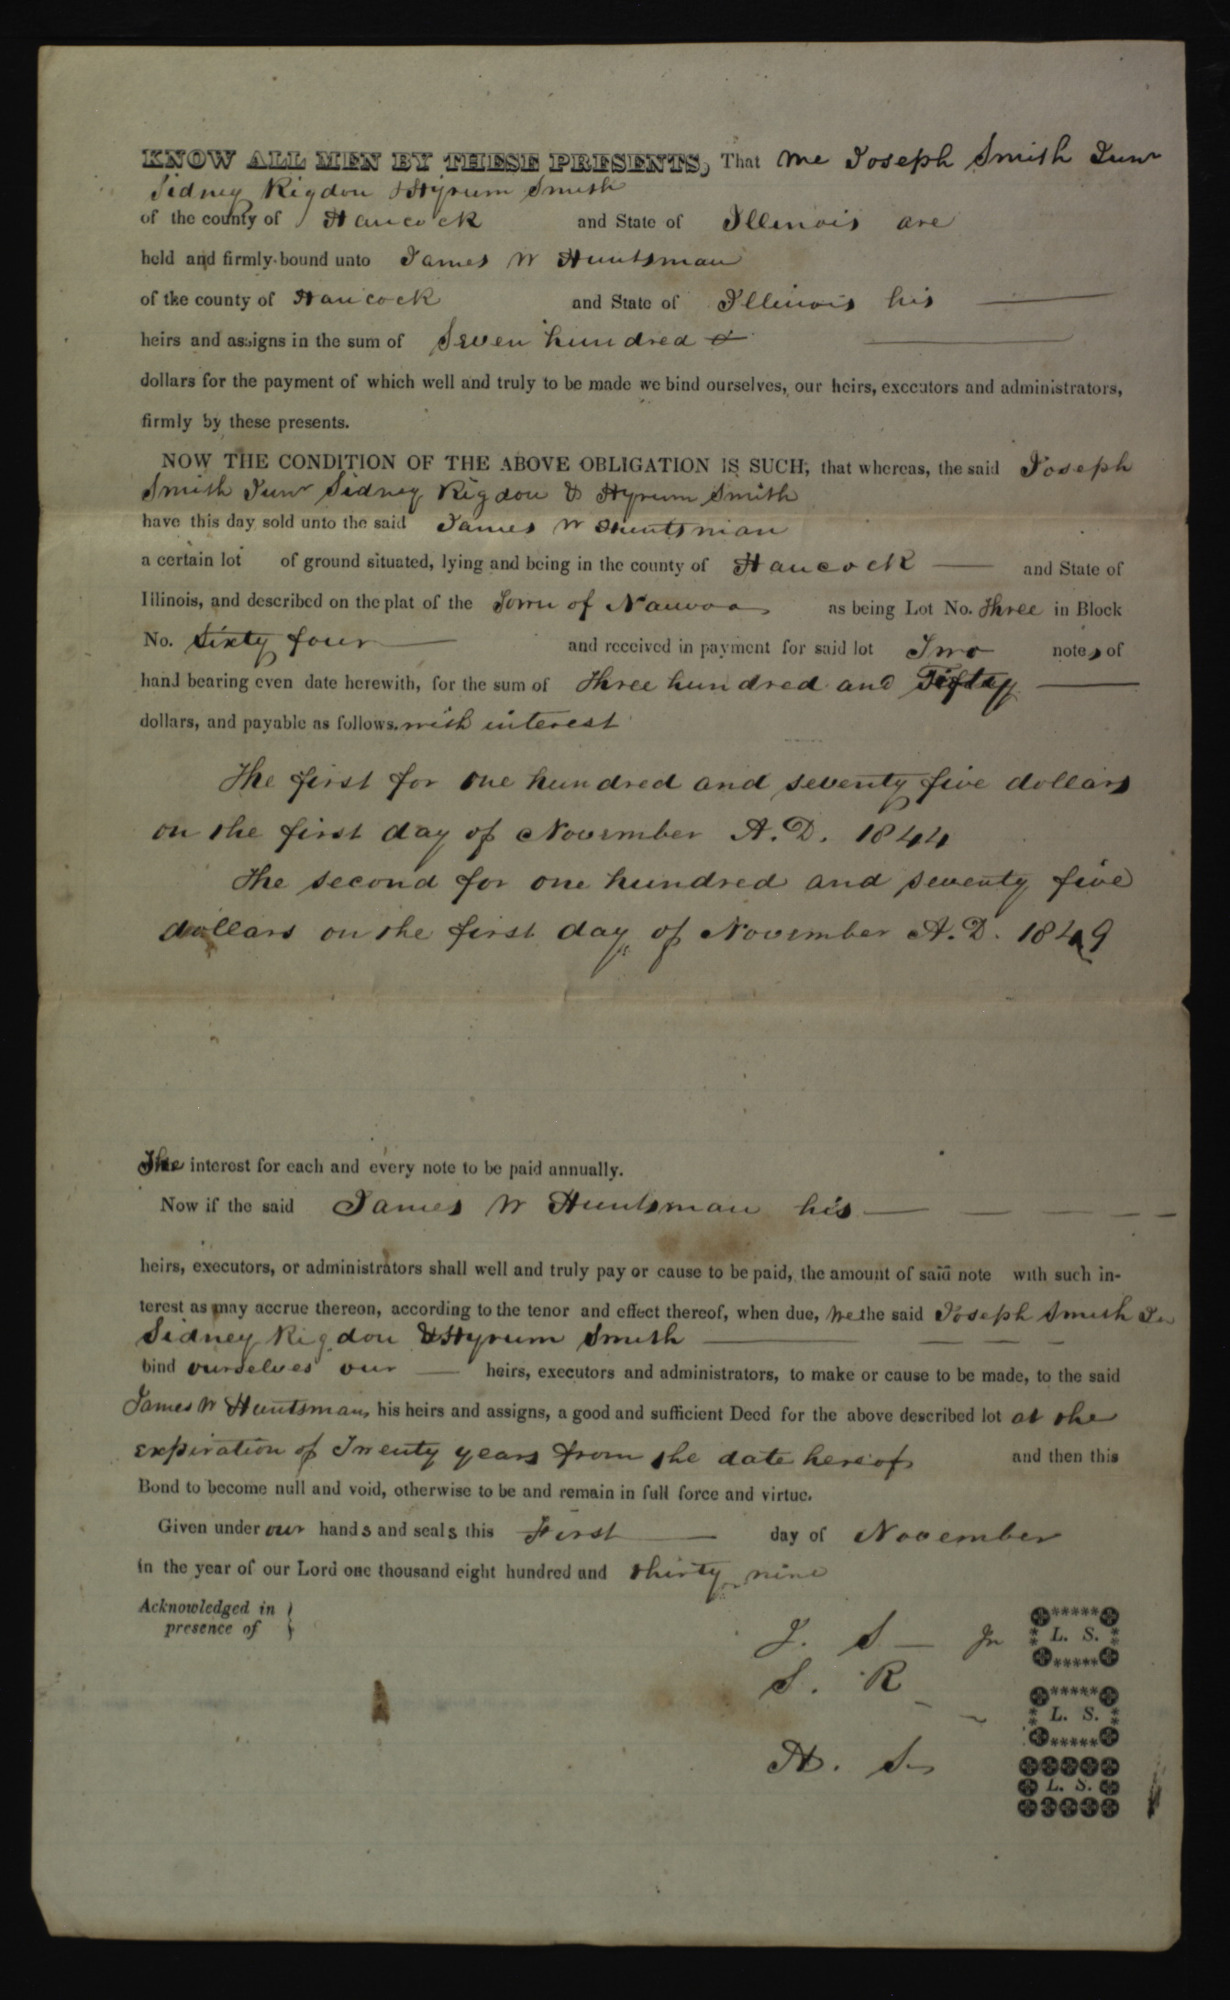 KNOW ALL MEN BY THESE PRESENTS, That We Joseph Smith Junr
Sidney Rigdon & Hyrum Smith
of the county of Hancock and State of Illinois are
held and firmly bound unto James W Huntsman
of the county of Hancock and State of Illinois his
heirs and assigns in the sum of Seven hundred
dollars for the payment of which well and truly to be made we bind ourselves, our heirs, executors and administrators,
firmly by these presents.
NOW THE CONDITION OF THE ABOVE OBLIGATION IS SUCH, that whereas, the said Joseph
Smith Junr Sidney Rigdon & Hyrum Smith
have this day sold unto the said James W Huntsman
a certain lot of ground situated, lying and being in the county of Hancock — and State of
Illinois, and described on the plat of the Town of Nauvoo as being Lot No. Three in Block
No. Sixty four — and received in payment for said lot Two notes of
hand bearing even date herewith, for the sum of Three hundred and Fifty —
dollars, and payable as follows. with interest
The first for one hundred and seventy five dollars
on the first day of November A.D. 1844
The second for one hundred and seventy five
dollars on the first day of November A.D. 1849
The interest for each and every note to be paid annually.
Now if the said James W Huntsman his — — — — —
heirs, executors, or administrators shall well and truly pay or cause to be paid, the amount of said note with such in-
terest as may accrue thereon, according to the tenor and effect thereof, when due, We the said Joseph Smith Jr
Sidney Rigdon & Hyrum Smith — — — —
bind ourselves our — heirs, executors and administrators, to make or cause to be made, to the said
James W Huntsman, his heirs and assigns, a good and sufficient Deed for the above described lot at the
expiration of Twenty years from the date hereof and then this
Bond to become null and void, otherwise to be and remain in full force and virtue.
Given under our hands and seals this First — day of November
in the year of our Lord one thousand eight hundred and thirty nine
Acknowledged in
presence of
J. S — Jr L. S.
S. R L. S.
H. S L. S.